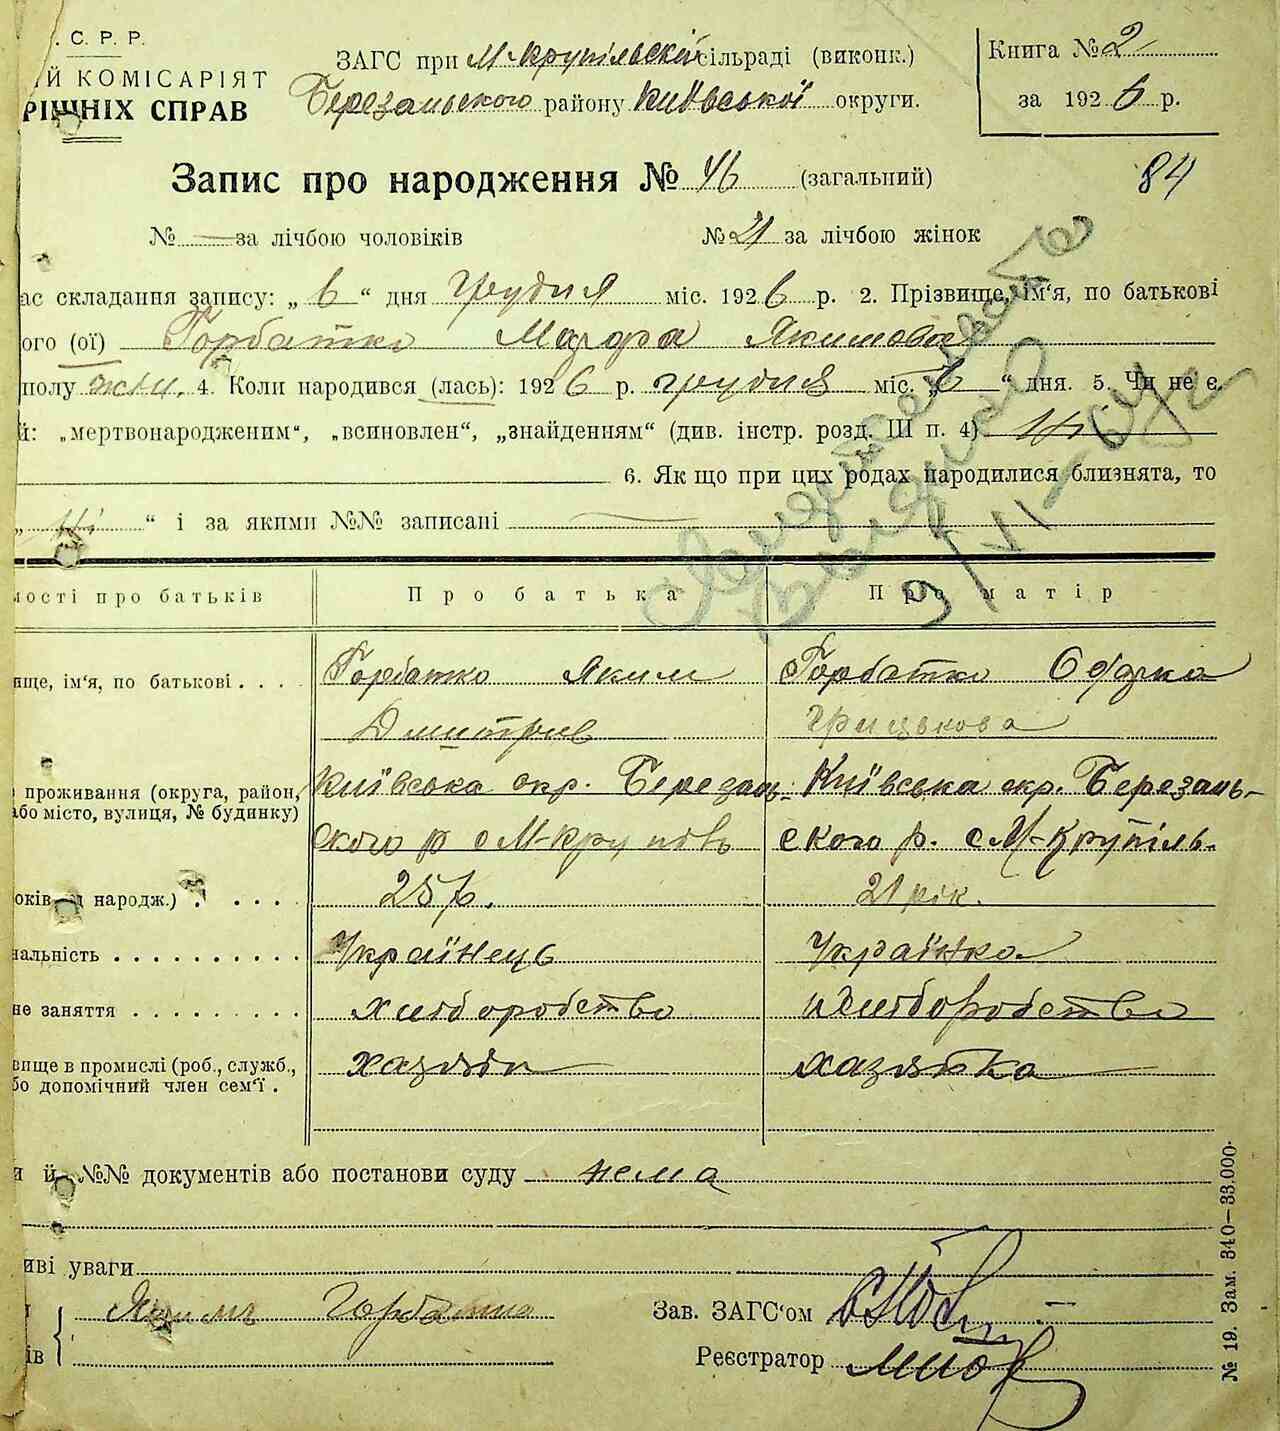 . С. Р. Р.
ИЙ КОМІСАРІЯТ
РІШНІХ СПРАВ
ЗАГС при М-Крупільскій сільраді (виконк.)
Березанського району Київської округи.
Книга № 2
за 1926 р.
84
Запис про народження № 46 (загальний)
№ — за лічбою чоловіків
№ 21 за лічбою жінок
ас складання запису: „ 6 “ дня грудня міс. 1926 р. 2. Прізвище, ім‘я, по батькові
ого (ої) Горбатко Мафра Якимова
полу жін. 4. Коли народився (лась): 1926 р. грудня міс. „6 “ дня. 5. Чи не є
й: „мертвонародженим“, „всиновлен“, „знайденням“ (див. інстр. розд. III п. 4) Ні
6. Як що при цих родах народилися близнята, то
„ Ні “ і за якими №№ записані
мості про батьків
Про батька
Про матір
ище, ім‘я, по батькові . . . .
Горбатко Яким
Дмитрів
Горбатко Євдока
Грицькова
проживання (округа, район,
або місто, вулиця, № будинку)
Київська окр. Березан-
ского р с М-Крупіль
Київська окр. Березань-
ского р. с М-Крупіль-
оків від народж.) . . . . .
25 р.
21 рік.
нальність . . . . . . . . . .
Українець
Українка
не заняття . . . . . . . . .
хліборобство
хліборобство
вище в промислі (роб., служб.,
бо допомічний член сем‘ї .
хазяін
хазяйка
и й №№ документів або постанови суду нема
иві уваги
Якимъ Горбатко
ів
Зав. ЗАГС‘ом
Реєстратор
№ 19. Зам. 340—33.000.